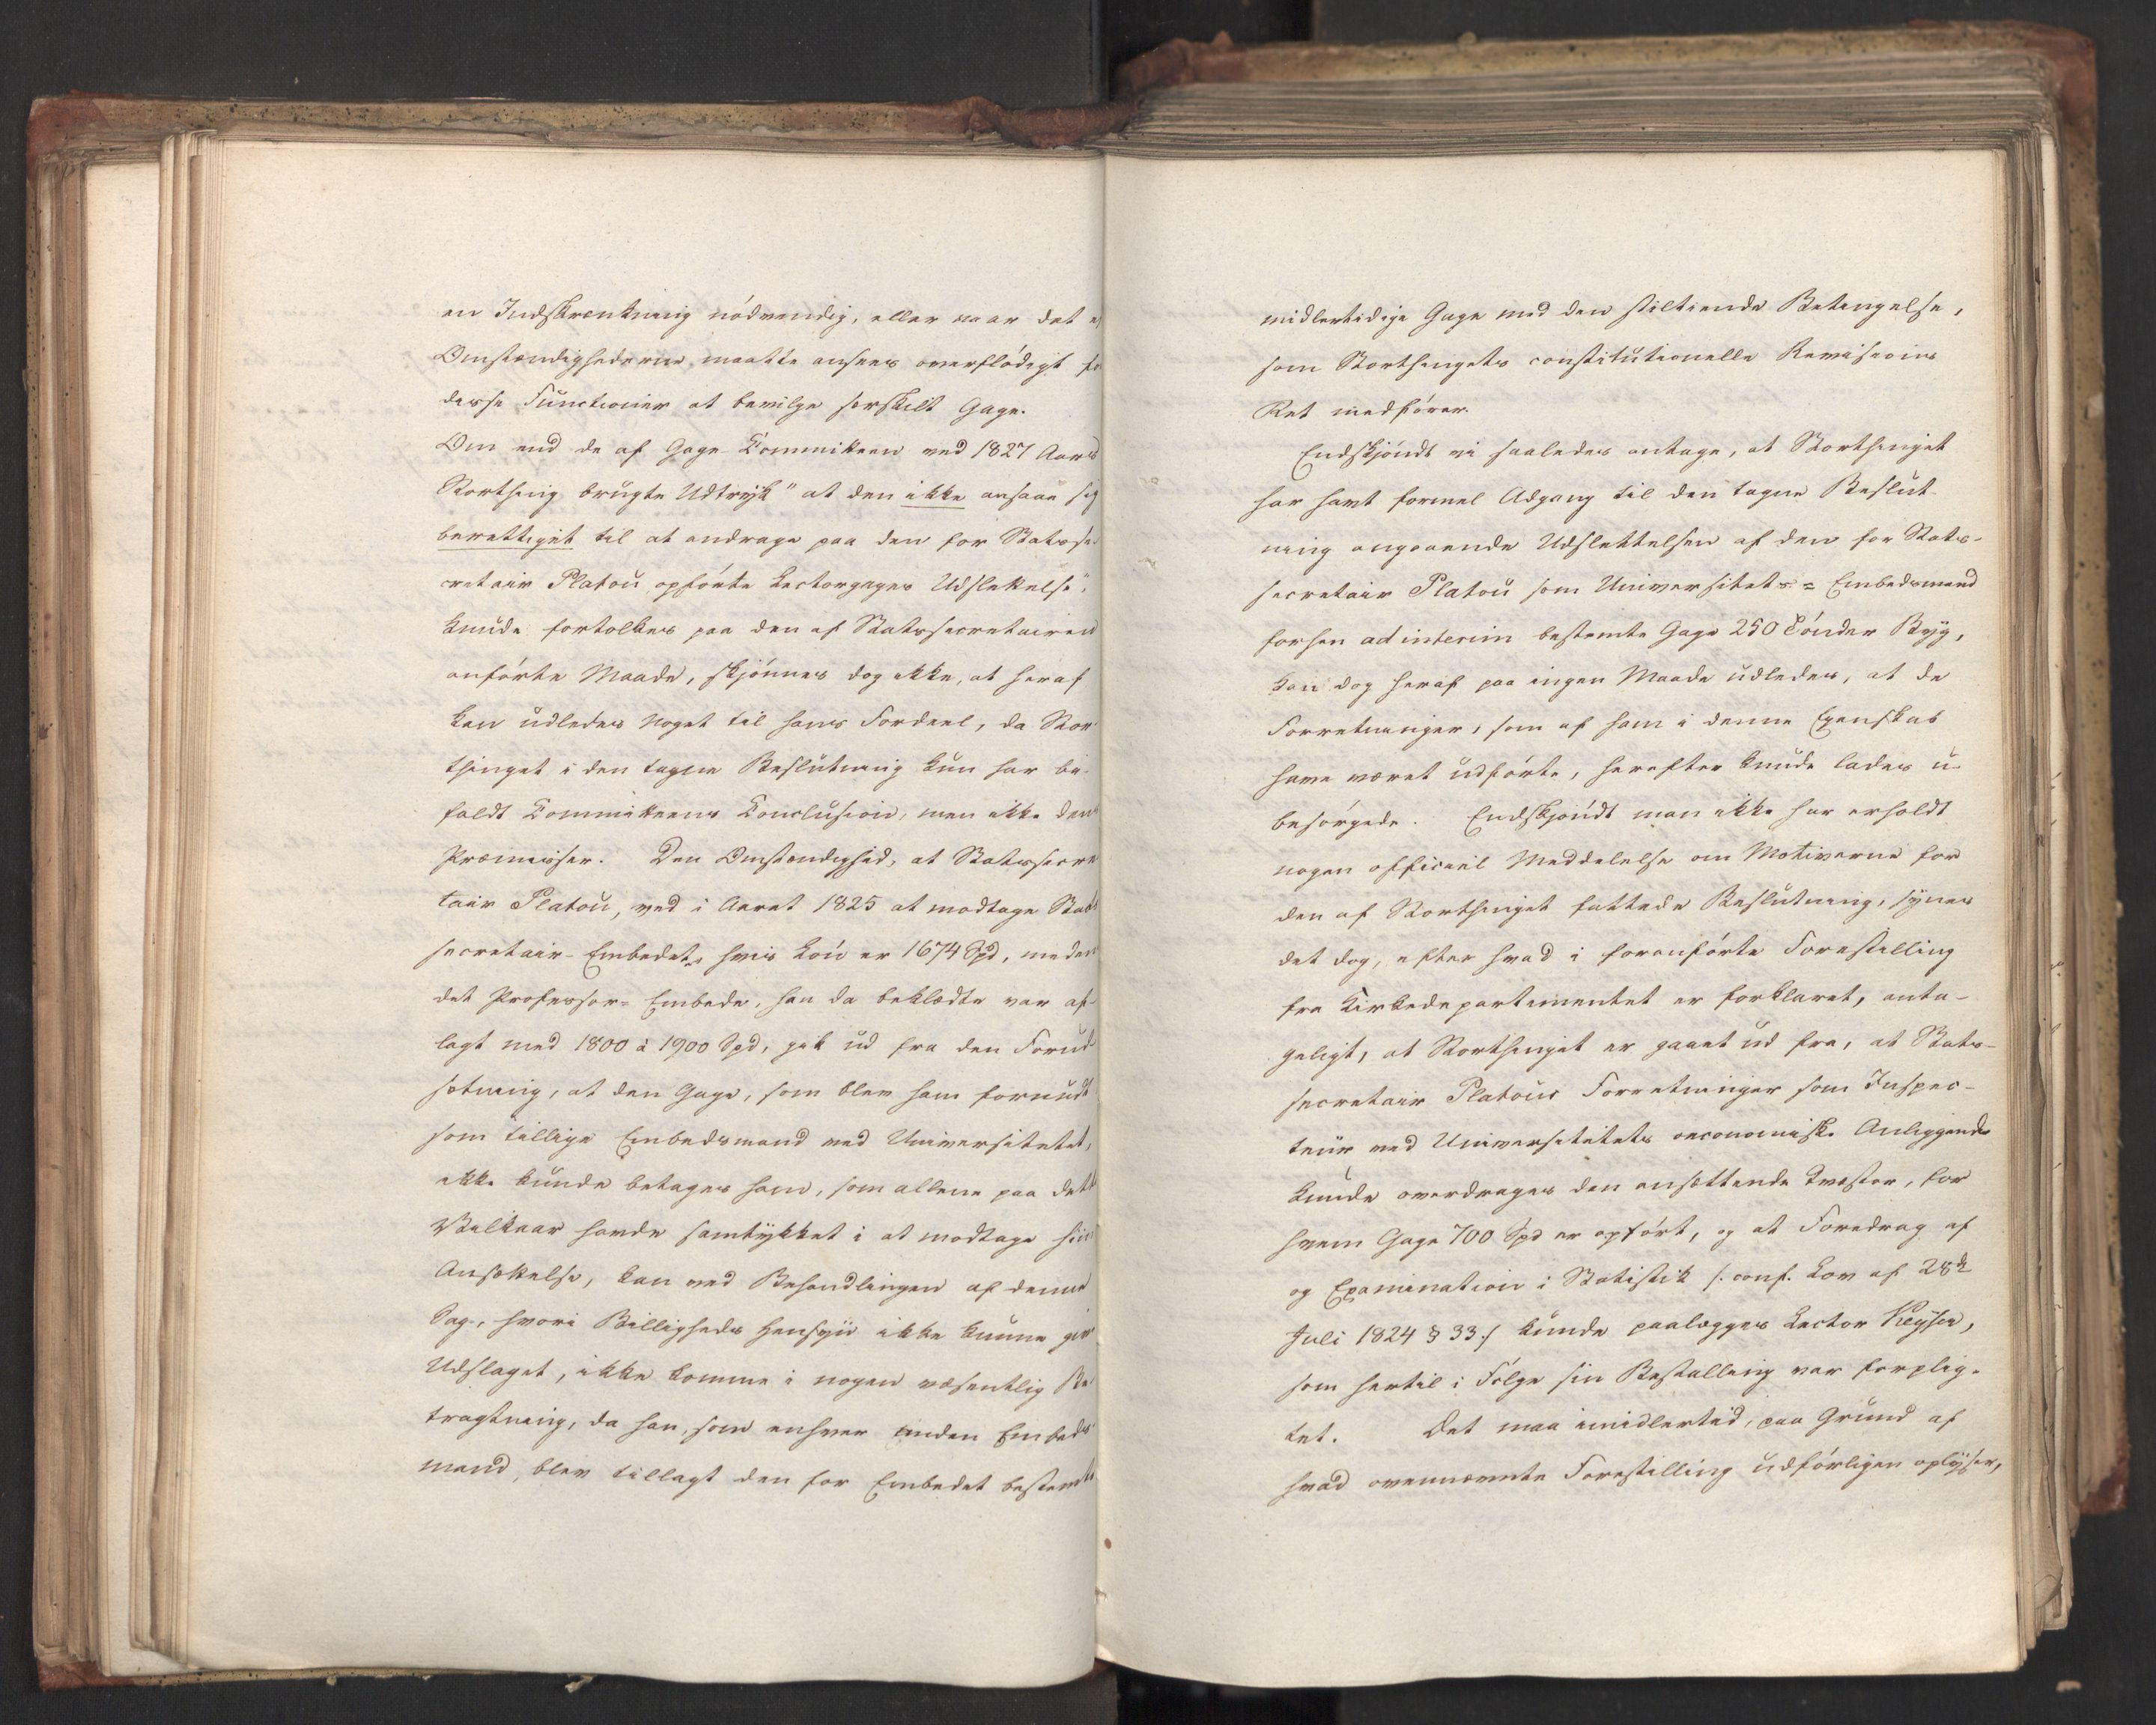 en Indskrænkning nödvendig, eller naar det ef
Omstændighederne maatte ansees overflödigt for
disse Functioner at bevilge særskilt Gage.
Om end de af Gage-Committeen ved 1827 Aars
Storthing brugte Udtryk "at den ikke ansaae sig
berettiget til at andrage paa den for Statsse-
cretair Platou opförte Lectorgages Udslettelse",
kunde fortolkes paa den af Statssecretairen
anförte Maade, skjönnes dog ikke, at heraf
kan udledes noget til hans Fordeel, da Stor-
thinget i den tagne Beslutning kun har bi-
faldt Committeens Conclusion, men ikke dens
Præmisser. Den Omstændighed, at Statssecre-
tair Platou, ved i Aaret 1825 at modtage Stats
secretair-Embedet, hvis Lön er 1674 Spd, meden
det Professor-Embede, han da beklædte var af-
lagt med 1800 à 1900 Spd, gik ud fra den Forud-
sætning, at den Gage, som blev ham forundt
som tillige Embedsmand ved Universitetet,
ikke kunde betages ham, som allene paa dette
Vilkaar havde samtykket i at modtage hiin
Ansættelse, kan ved Behandlingen af denne
Sag, hvori Billigheds Hensyn ikke kunne give
Udslaget, ikke komme i nogen væsentlig Be-
tragtning, da han, som enhver anden Embeds-
mand, blev tillagt den for Embedet bestemte
midlertidige Gage med den stiltiende Betingelse,
som Storthingets constitutionelle Revisions
Ret medförer.
Endskjöndt vi saaledes antage, at Storthinget
har havt formel Adgang til den tagne Beslut-
ning angaaende Udslettelsen af den for Stats-
secretair Platou som Universitets-Embedsmand
forhen ad interim bestemte Gage 250 Tönder Byg,
kan dog heraf paa ingen Maade udledes, at de
Forretninger, som af ham i denne Egenskab
have været udförte, herefter kunde lades u-
besörgede. Endskjöndt man ikke har erholdt
nogen officiel Meddelelse om Motiverne for
den af Storthinget fattede Beslutning, synes
det dog, efter hvad i foranförte Forestilling
fra Kirkedepartementet er forklaret, anta-
geligt, at Storthinget er gaaet ud fra, at Stats-
secretair Platous Forretninger som Inspec-
teur ved Universitetets oeconomiske Anliggende
kunde overdrages den ansættende Qvæstor, for
hvem Gage 700 Spd er opfört, og at Foredrag af
og Examination i Statistik /: conf. Lov af 28de
Juli 1824 § 33 :/ kunde paalægges Lector Keyser,
som hertil i Fölge sin Bestalling var forplig-
tet. Det maa imidlertid, paa Grund af
hvad ovennævnte Forestilling udförligen oplyser,